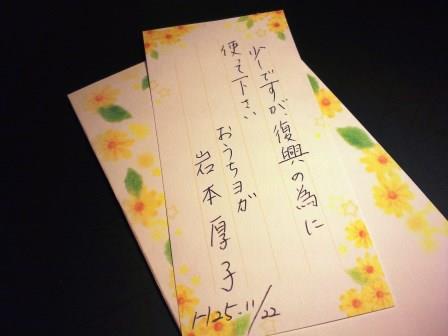 少しですが、復興の為に
使て下さい
おうちヨガ
岩本厚子
H25.11/22